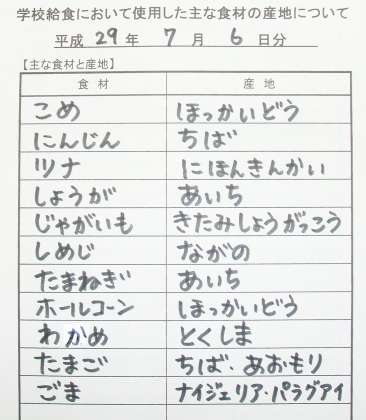 学校給食において使用した主な食材の産地について
平成 29 年 7 月 6 日分
【主な食材と産地】
食材 産地
こめ ほっかいどう
にんじん ちば
ツナ にほんきんかい
しょうが あいち
じゃがいも きたみしょうがっこう
しめじ ながの
たまねぎ あいち
ホールコーン ほっかいどう
わかめ とくしま
たまご ちば・あおもり
ごま ナイジェリア・パラグアイ